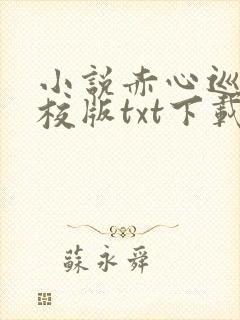 小說赤心巡
校版txt下載
蘇永舜